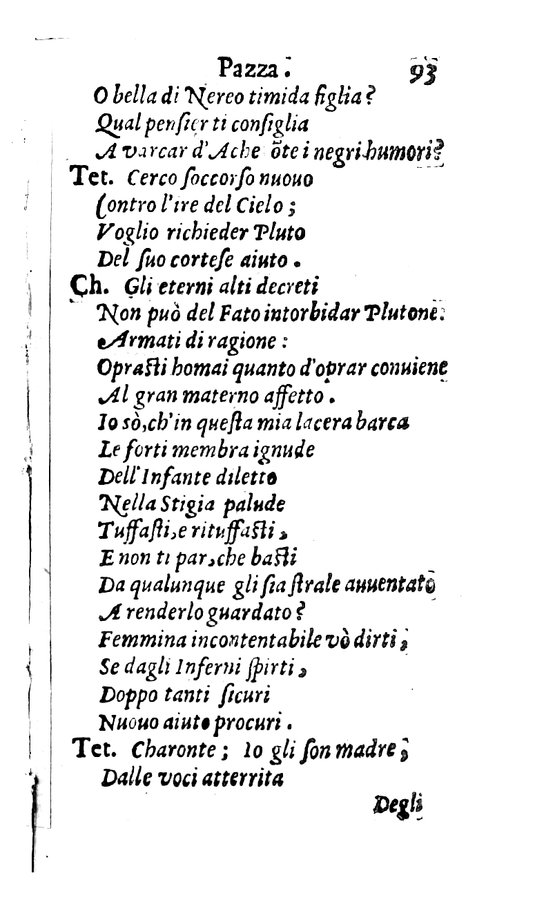 Pazza. 93
O bella di Nereo timida figlia?
Qual penſier ti conſiglia
A varcar d'Ache ōte i negri humori?
Tet. Cerco ſoccorſo nuouo
Contro l'ire del Cielo;
Voglio richieder Pluto
Del ſuo corteſe aiuto.
Ch. Gli eterni alti decreti
Non può del Fato intorbidar Plutone:
Armati di ragione:
Opraſti homai quanto d'oprar conuiene
Al gran materno affetto.
Io sò, ch'in queſta mia lacera barca
Le forti membra ignude
Dell'Infante diletto
Nella Stigia palude
Tuffaſti, e rituffaſti,
E non ti par, che baſti
Da qualunque gli ſia ſtrale auuentato
A renderlo guardato?
Femmina incontentabile vò dirti,
Se dagli Inferni ſpirti,
Doppo tanti ſicuri
Nuouo aiuto procuri.
Tet. Charonte; Io gli ſon madre;
Dalle voci atterrita
Degli